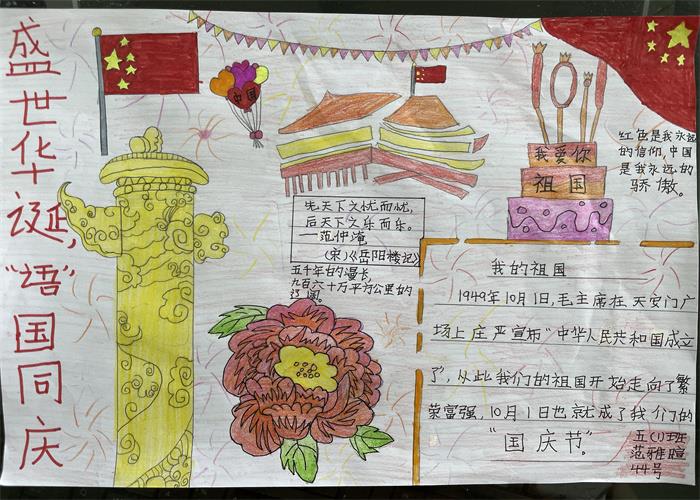 盛世华诞，
“语”国同庆
中国
我爱你
祖国
红色是我永远
的信仰,中国
是我永远的
骄傲。
先天下之忧而忧,
后天下之乐而乐。
——范仲淹
(宋)《岳阳楼记》
五千年的漫长
九百六十万平方公里的
辽阔。
我的祖国
1949年10月1日,毛主席在天安门广
场上庄严宣布“中华人民共和国成立
了”,从此我们的祖国开始走向了繁
荣富强,10月1日也就成了我们的
“国庆节”。
五(1)班
范雅暄
44号